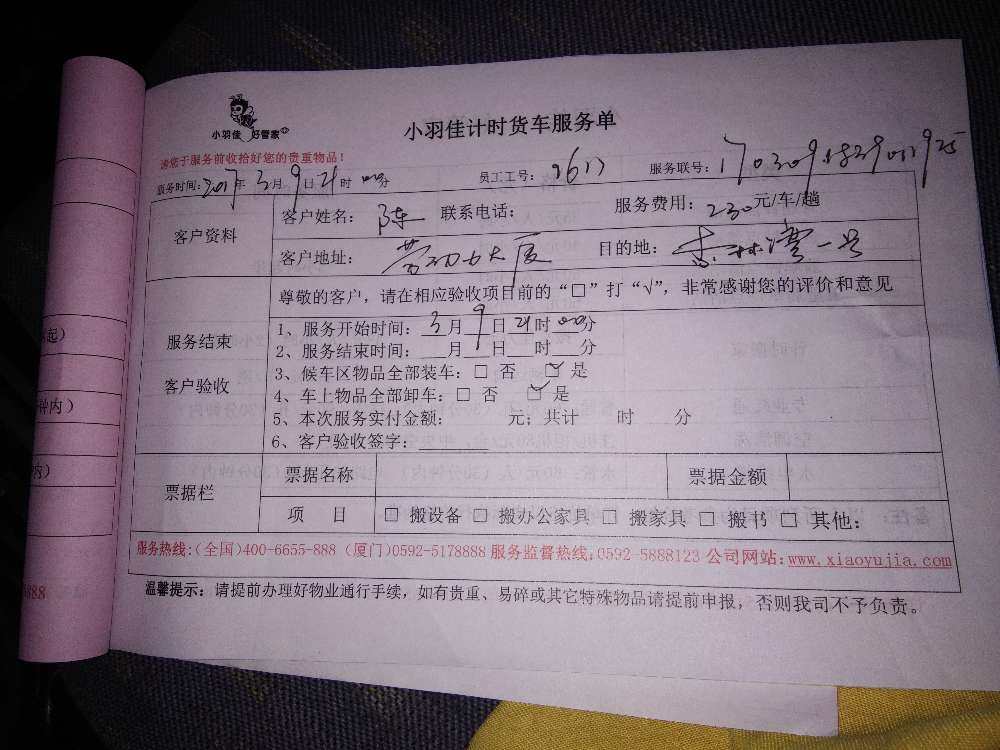 小羽佳 好管家
小羽佳计时货车服务单
请您于服务前收拾好您的贵重物品!
服务时间:2017年3月9日21时00分 员工工号: 服务联号:
客户资料
客户姓名: 陈 联系电话: 服务费用: 230元/车/趟
客户地址: 劳动力大厦 目的地: 一号
尊敬的客户,请在相应验收项目前的“□”打“√”,非常感谢您的评价和意见
服务结束
客户验收
1、服务开始时间: 3月9日21时00分
2、服务结束时间:___月___日___时___分
3、候车区物品全部装车:□ 否 ☑ 是
4、车上物品全部卸车:□ 否 ☑ 是
5、本次服务实付金额: 元;共计 时 分
6、客户验收签字:________
票据栏
票据名称 票据金额
项 目 □ 搬设备 □ 搬办公家具 □ 搬家具 □ 搬书 □ 其他:
服务热线:(全国)400-6655-888 (厦门)0592-5178888 服务监督热线:0592-5888123 公司网站:www.xiaoyujia.com
温馨提示:请提前办理好物业通行手续,如有贵重、易碎或其它特殊物品请提前申报,否则我司不予负责。
起)
种内)
内)
8888